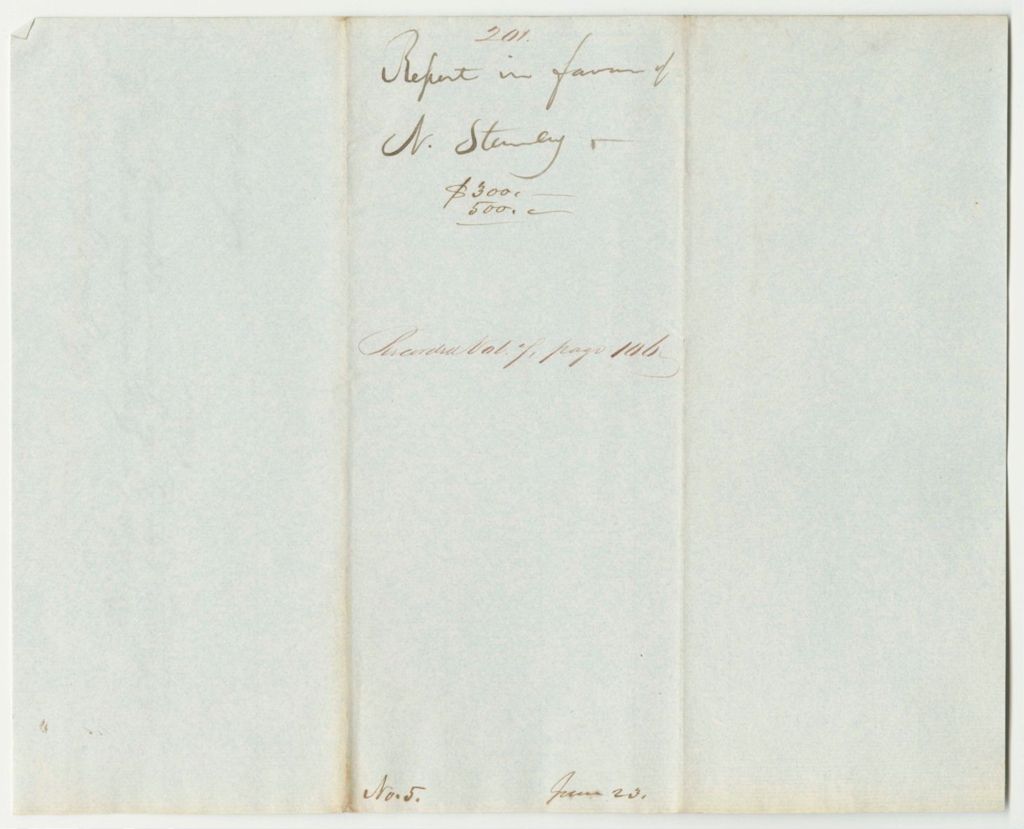 201.
Report in favor of
N. Stanley -
$300.-
500.-
Recorded Vol. 7, page 146.
No. 5. June 23.